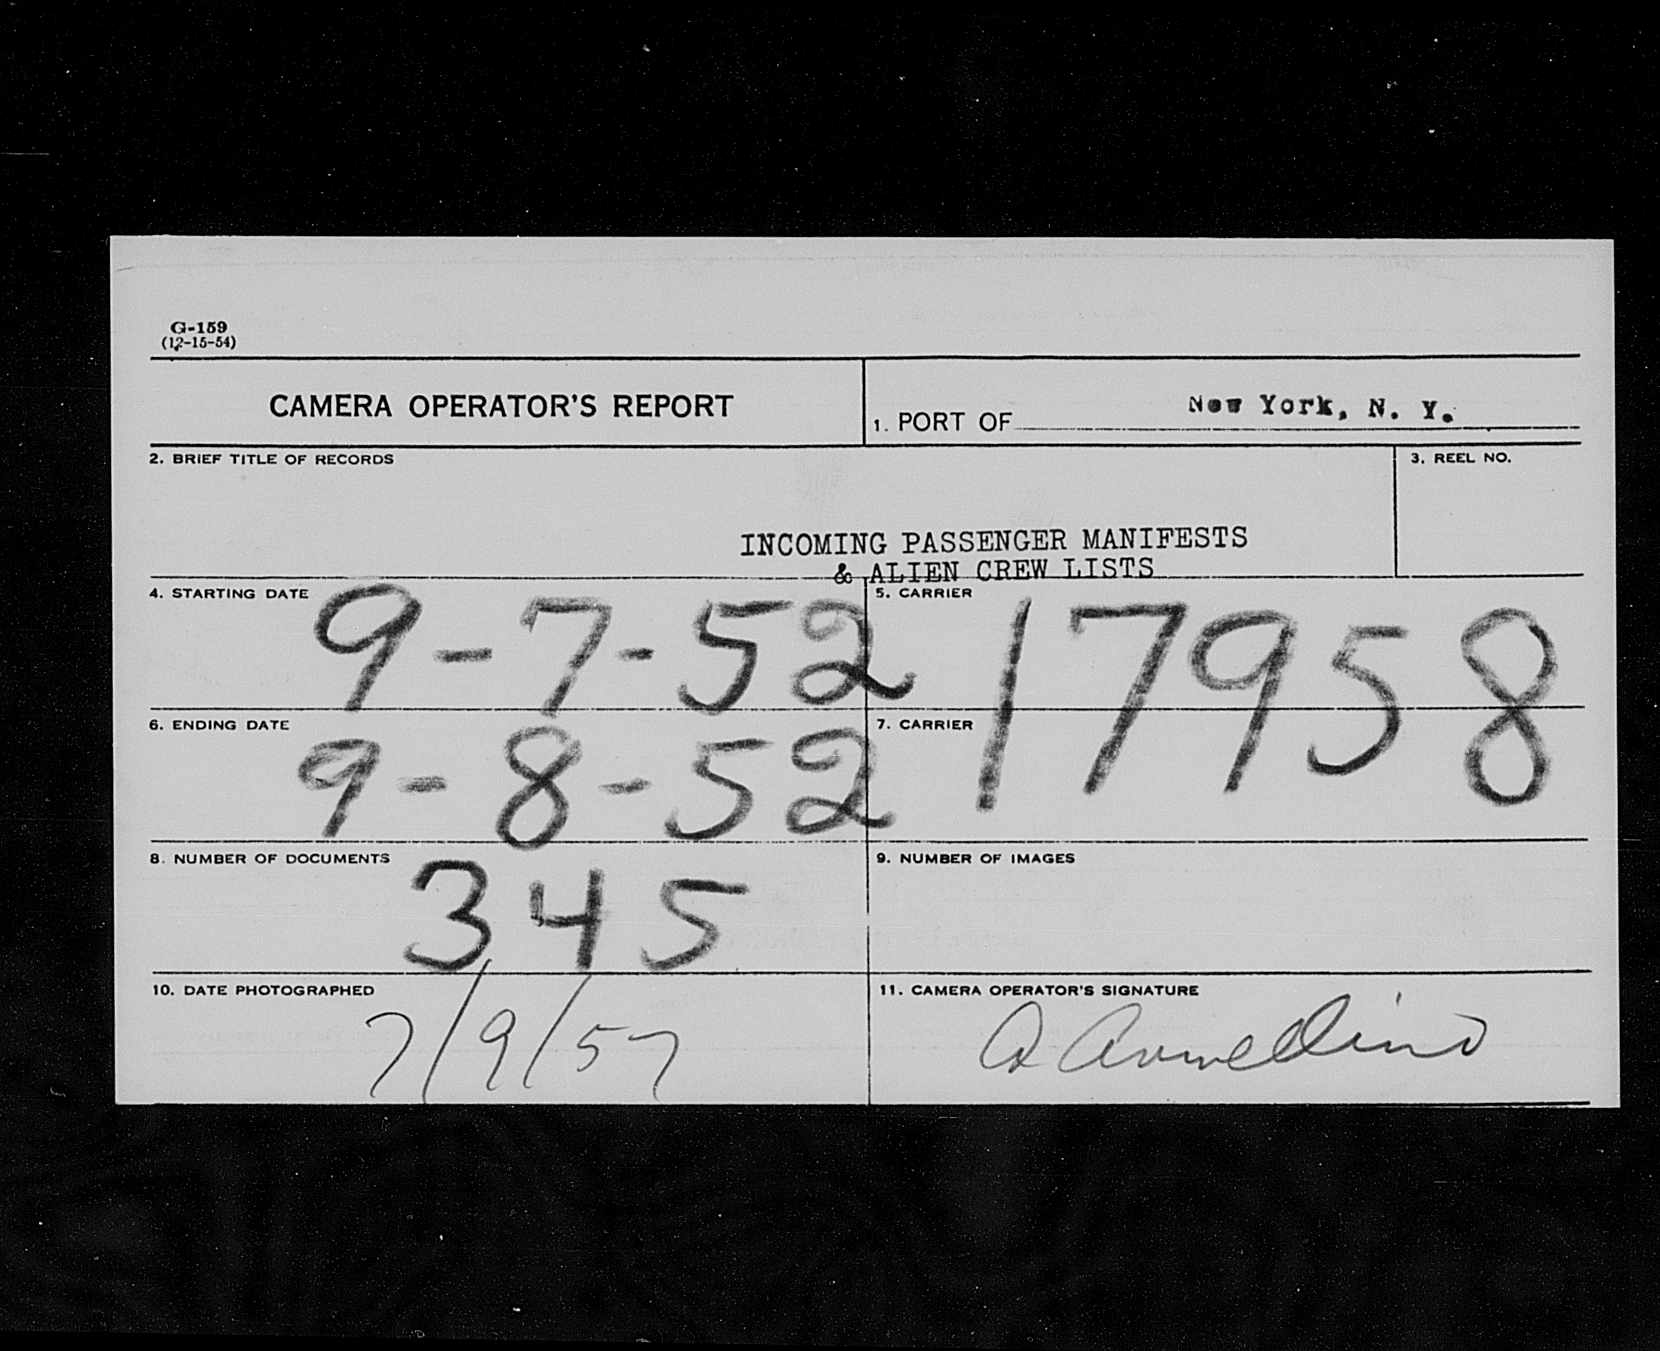 G-159
(12-15-54)
CAMERA OPERATOR'S REPORT
1. PORT OF New York, N. Y.
2. BRIEF TITLE OF RECORDS
3. REEL NO.
INCOMING PASSENGER MANIFESTS
& ALIEN CREW LISTS
4. STARTING DATE 9-7-52
5. CARRIER
17958
6. ENDING DATE 9-8-52
7. CARRIER
8. NUMBER OF DOCUMENTS 345
9. NUMBER OF IMAGES
10. DATE PHOTOGRAPHED 7/9/57
11. CAMERA OPERATOR'S SIGNATURE